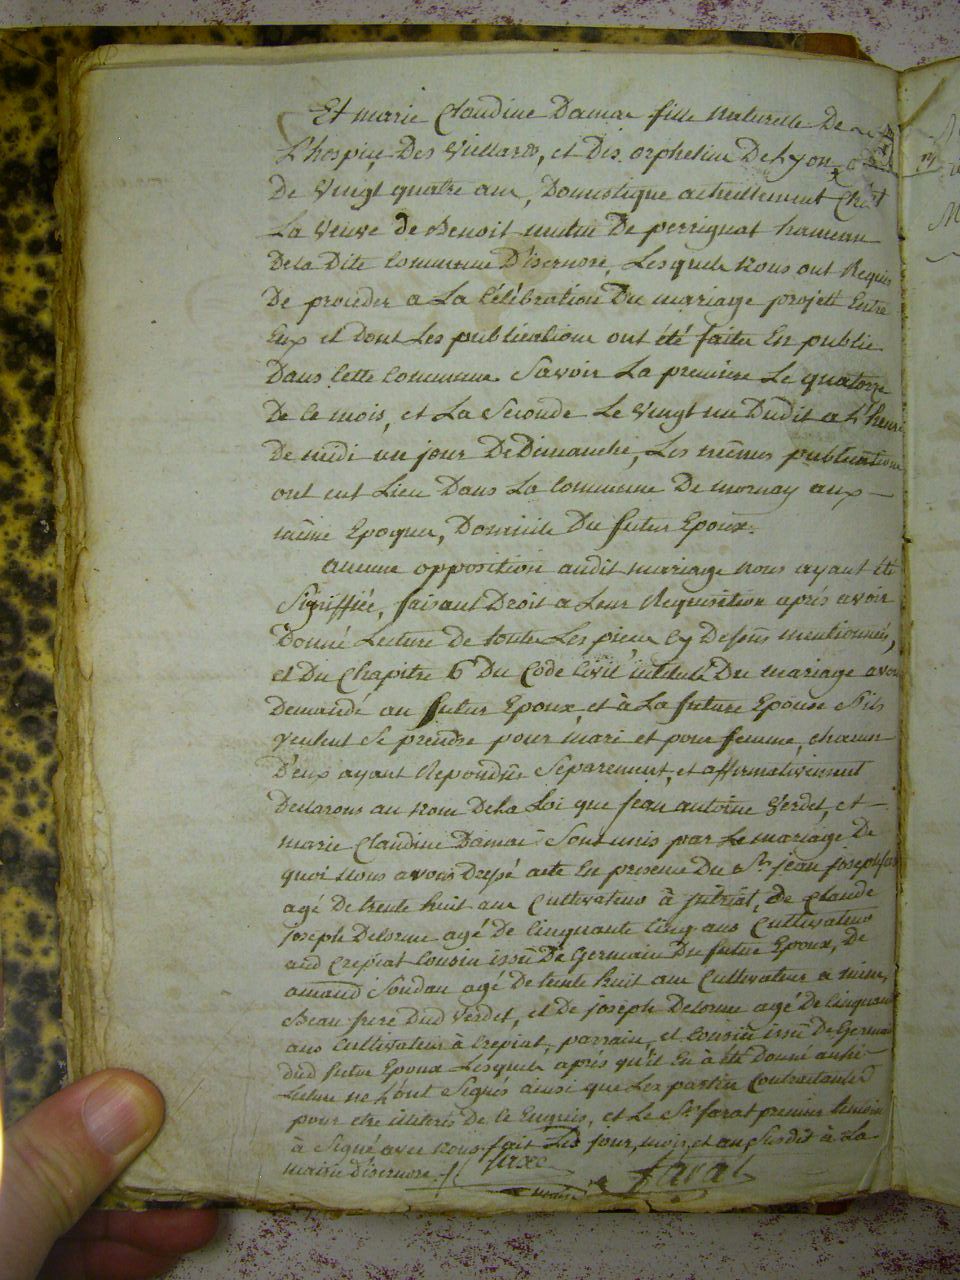 Et marie Claudine Damai fille Naturelle De
L'hospice Des Viellards, et Des orphelins De Lyon
De Vingt quatre ans, Domestique actuellement Chez
La Veuve de Benoit De perrignat hameau
De La Dite Commune D'isernore, Lesquels Nous ont Requis
De proceder a La Célébration Du mariage projetté Entre
Eux et Dont Les publications ont été faites En public
Dans Cette Commune Savoir La premiere Le quatorze
De Ce mois, et La Seconde Le Vingt un Dudit a L'heure
De midi un jour De Dimanche, Les mêmes publications
ont eut Lieu Dans La Commune De mornay aux
même Epoques, Domicile Du futur Epoux.
aucune opposition audit mariage Nous ayant été
Signiffiée, faisant Droit a Leur Requisition après avoir
Donné Lecture De toutes Les pieces Cy Dessus mentionnées,
et Du Chapitre 6 Du Code Civil intitulé Du mariage avons
Demandé au futur Epoux et à La future Epouse S'ils
Veulent Se prendre pour mari et pour femme, chacun
D'eux ayant Repondus Séparement, et affirmativement
Declarons au Nom De La Loi que jean antoine Verdet, et
marie Claudine Damai Sont unis par Le mariage De
quoi Nous avons Dressé acte En presence Du Sr jean joseph
agé De trente huit ans Cultivateur à De Claude
joseph Delorme agé De Cinquante Cinq ans Cultivateur
aud Crepiat Cousin issû De Germain Du futur Epoux, De
amand Soudan agé De trente huit ans Cultivateur a
Beau frere Dud Verdet, et De joseph Delorme agé De Cinquante
ans Cultivateur à Crepiat, parrain, et Cousin issû De Germain
Dud futur Epoux Lesquels après qu'il En à été Donné aussi
Lecture ne L'ont Signés ainsi que Les parties Contractantes
pour être illiterés De Ce Enquis, et Le Sr farat premier témoin
à Signé avec Nous fait Les jour, mois, et an, Susdit à La
mairie D'isernore farat